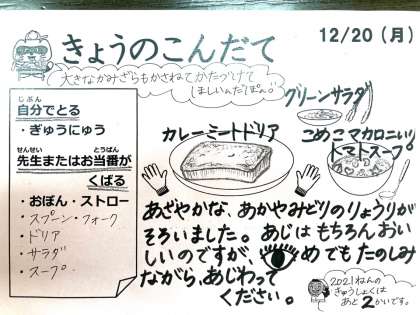 きょうのこんだて
12/20（月）
大きなかみざらもかさねてかたづけて
ほしいんだぽん。
じぶん
自分でとる
・ぎゅうにゅう
せんせい とうばん
先生またはお当番が
くばる
・おぼん・ストロー
・スプーン・フォーク
・ドリア
・サラダ
・スープ
グリーンサラダ
カレーミートドリア
こめこマカロニいり
トマトスープ
あざやかな、あかやみどりのりょうりが
そろいました。あじはもちろんおい
しいのですが、めでもたのしみ
ながら、あじわって
ください。
2021ねんの
きゅうしょくは
あと2かいです。